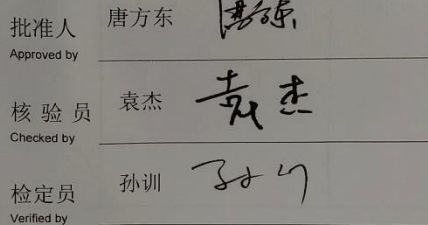 批准人 唐方东 唐方东
Approved by
核验员 袁杰 袁杰
Checked by
检定员 孙训 孙训
Verified by